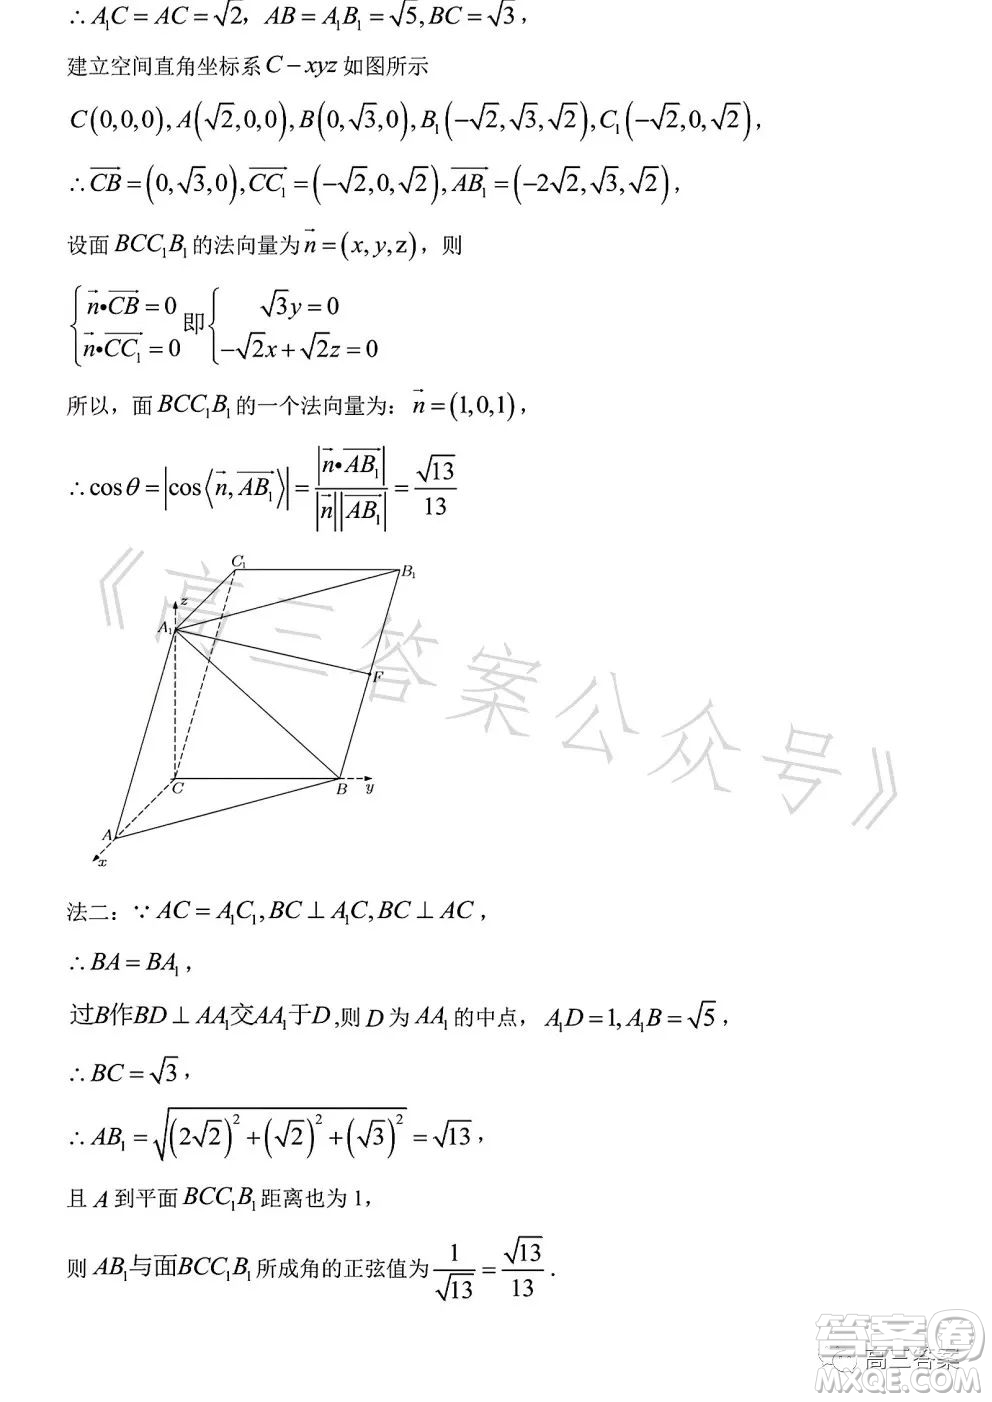 ∴ A₁C = AC = √2, AB = A₁B₁ = √5, BC = √3,
建立空间直角坐标系 C − xyz 如图所示
C(0,0,0), A(√2,0,0), B(0,√3,0), B₁(−√2,√3,√2), C₁(−√2,0,√2),
∴ \overrightarrow{CB} = (0,√3,0), \overrightarrow{CC₁} = (−√2,0,√2), \overrightarrow{AB₁} = (−2√2,√3,√2),
设面 BCC₁B₁ 的法向量为 \vec{n} = (x, y, z), 则
{ \vec{n}•\overrightarrow{CB} = 0, \vec{n}•\overrightarrow{CC₁} = 0 即 { √3y = 0, −√2x + √2z = 0
所以, 面 BCC₁B₁ 的一个法向量为: \vec{n} = (1,0,1),
∴ cosθ = |cos⟨\vec{n}, \overrightarrow{AB₁}⟩| = |\vec{n}•\overrightarrow{AB₁}| / |\vec{n}||\overrightarrow{AB₁}| = √13/13
C₁
B₁
z
A₁
F
C
B
y
A
x
《高三答案公众号》
法二: ∵ AC = A₁C₁, BC ⊥ A₁C, BC ⊥ AC,
∴ BA = BA₁,
过B作BD ⊥ AA₁交AA₁于D,则 D 为 AA₁ 的中点, A₁D = 1, A₁B = √5,
∴ BC = √3,
∴ AB₁ = √((2√2)² + (√2)² + (√3)²) = √13,
且 A 到平面 BCC₁B₁ 距离也为 1,
则 AB₁与面BCC₁B₁ 所成角的正弦值为 1/√13 = √13/13.
答案圈
高三答案
MXQE.COM